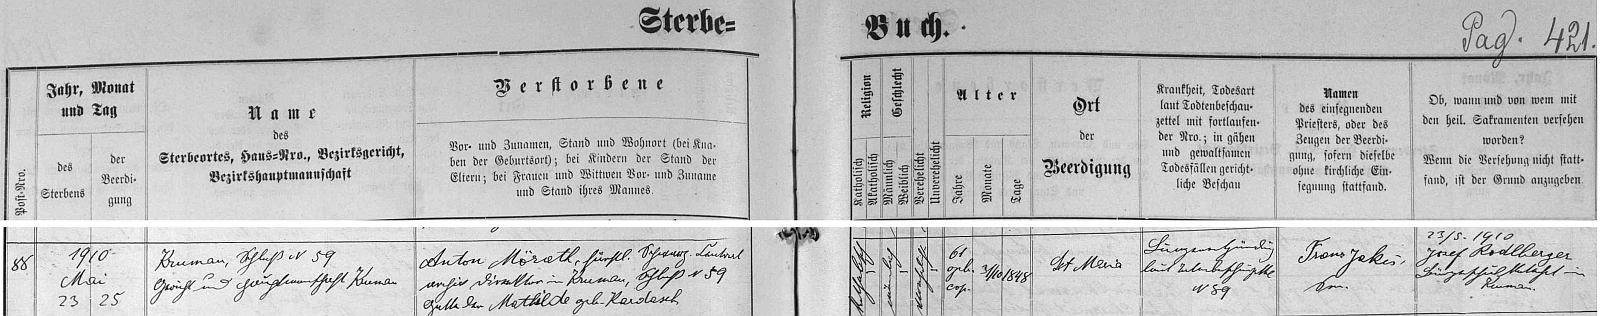 Sterbe=
Buch.
Pag. 421.
Post-Nro.
Jahr, Monat
und Tag
des
Sterbens
der
Beerdi-
gung
Name
des
Sterbeortes, Haus=Nro., Bezirksgericht,
Bezirkshauptmannschaft
Verstorbene
Vor- und Zunamen, Stand und Wohnort (bei Kna-
ben der Geburtsort); bei Kindern der Stand der
Eltern; bei Frauen und Wittwen Vor- und Zuname
und Stand ihres Mannes.
Religion
Katholisch
Akatholisch
Geschlecht
Männlich
Weiblich
Verehelicht
Unverehelicht
Alter
Jahre
Monate
Tage
Ort
der
Beerdigung
Krankheit, Todesart
laut Todtenbeschau-
zettel mit fortlaufen-
der Nro.; in gähen
und gewaltsamen
Todesfällen gericht-
liche Beschau
Namen
des einsegnenden
Priesters, oder des
Zeugen der Beerdi-
gung, sofern dieselbe
ohne kirchliche Ein-
segnung stattfand.
Ob, wann und von wem mit
den heil. Sakramenten versehen
worden?
Wenn die Versehung nicht statt-
fand, ist der Grund anzugeben
88
1910
Mai
23 25
Kruman, Schloß N 59
Gericht und Hauptmannschaft Kruman
Anton Mörath, fürstl. Schwarz. Central
archivs Direktor in Kruman, Schloß N 59
Gatte der Mathilde geb. Kardasch
katholisch
männlich
verehelicht
61
geb.
3/10 1848
St Maria
Lungenentzündung
laut
N 89
Franz Jakeš,
23/5. 1910
Josef Rodlberger
Bürgerschulkatechet in
Kruman.